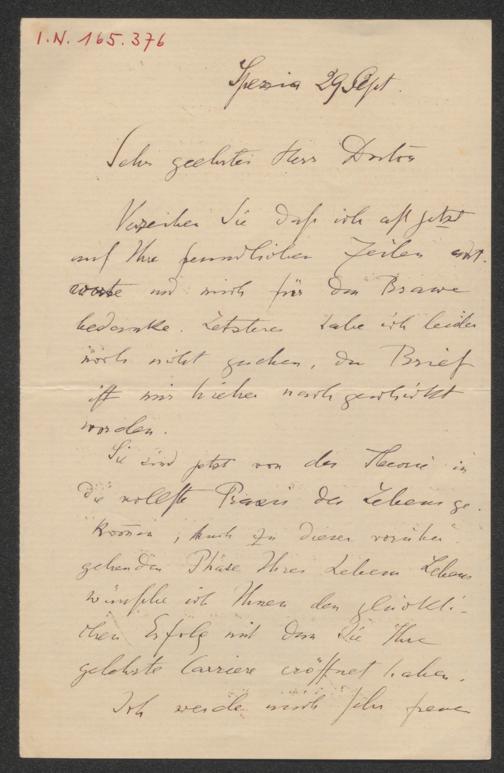 I.N. 165.376
Spezia 29 Sept.
Sehr geehrter Herr Doctor
Verzeihen Sie daß ich erst jetzt
auf Ihre freundlichen Zeilen ant-
worte und mich für den Brawe
bedanke. Letzteren habe ich leider
noch nicht gesehen, der Brief
ist mir hieher nachgeschickt
worden.
Sie sind jetzt von der Theorie in
die vollste Praxis des Lebens ge-
kommen, auch zu dieser vorüber-
gehenden Phase Ihres Lebens
wünsche ich Ihnen den glückli-
chen Erfolg mit dem Sie Ihre
gelehrte Carriere eröffnet haben.
Ich werde mich sehr freuen